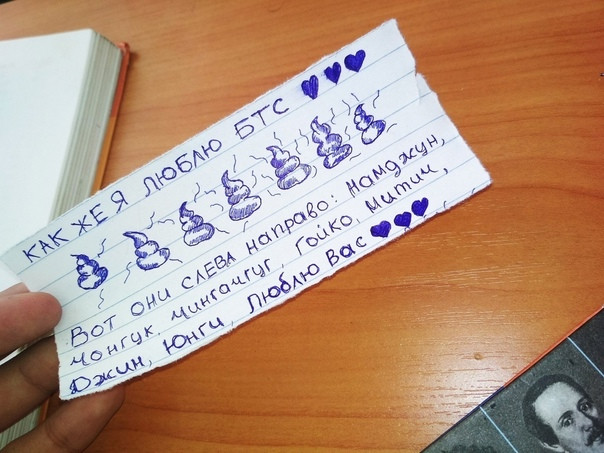 КАК ЖЕ Я ЛЮБЛЮ БТС
Вот они слева направо: Намджун,
Чонгук, Чингачгуг, Гойко, Митич,
Джин, Юнги. Люблю вас